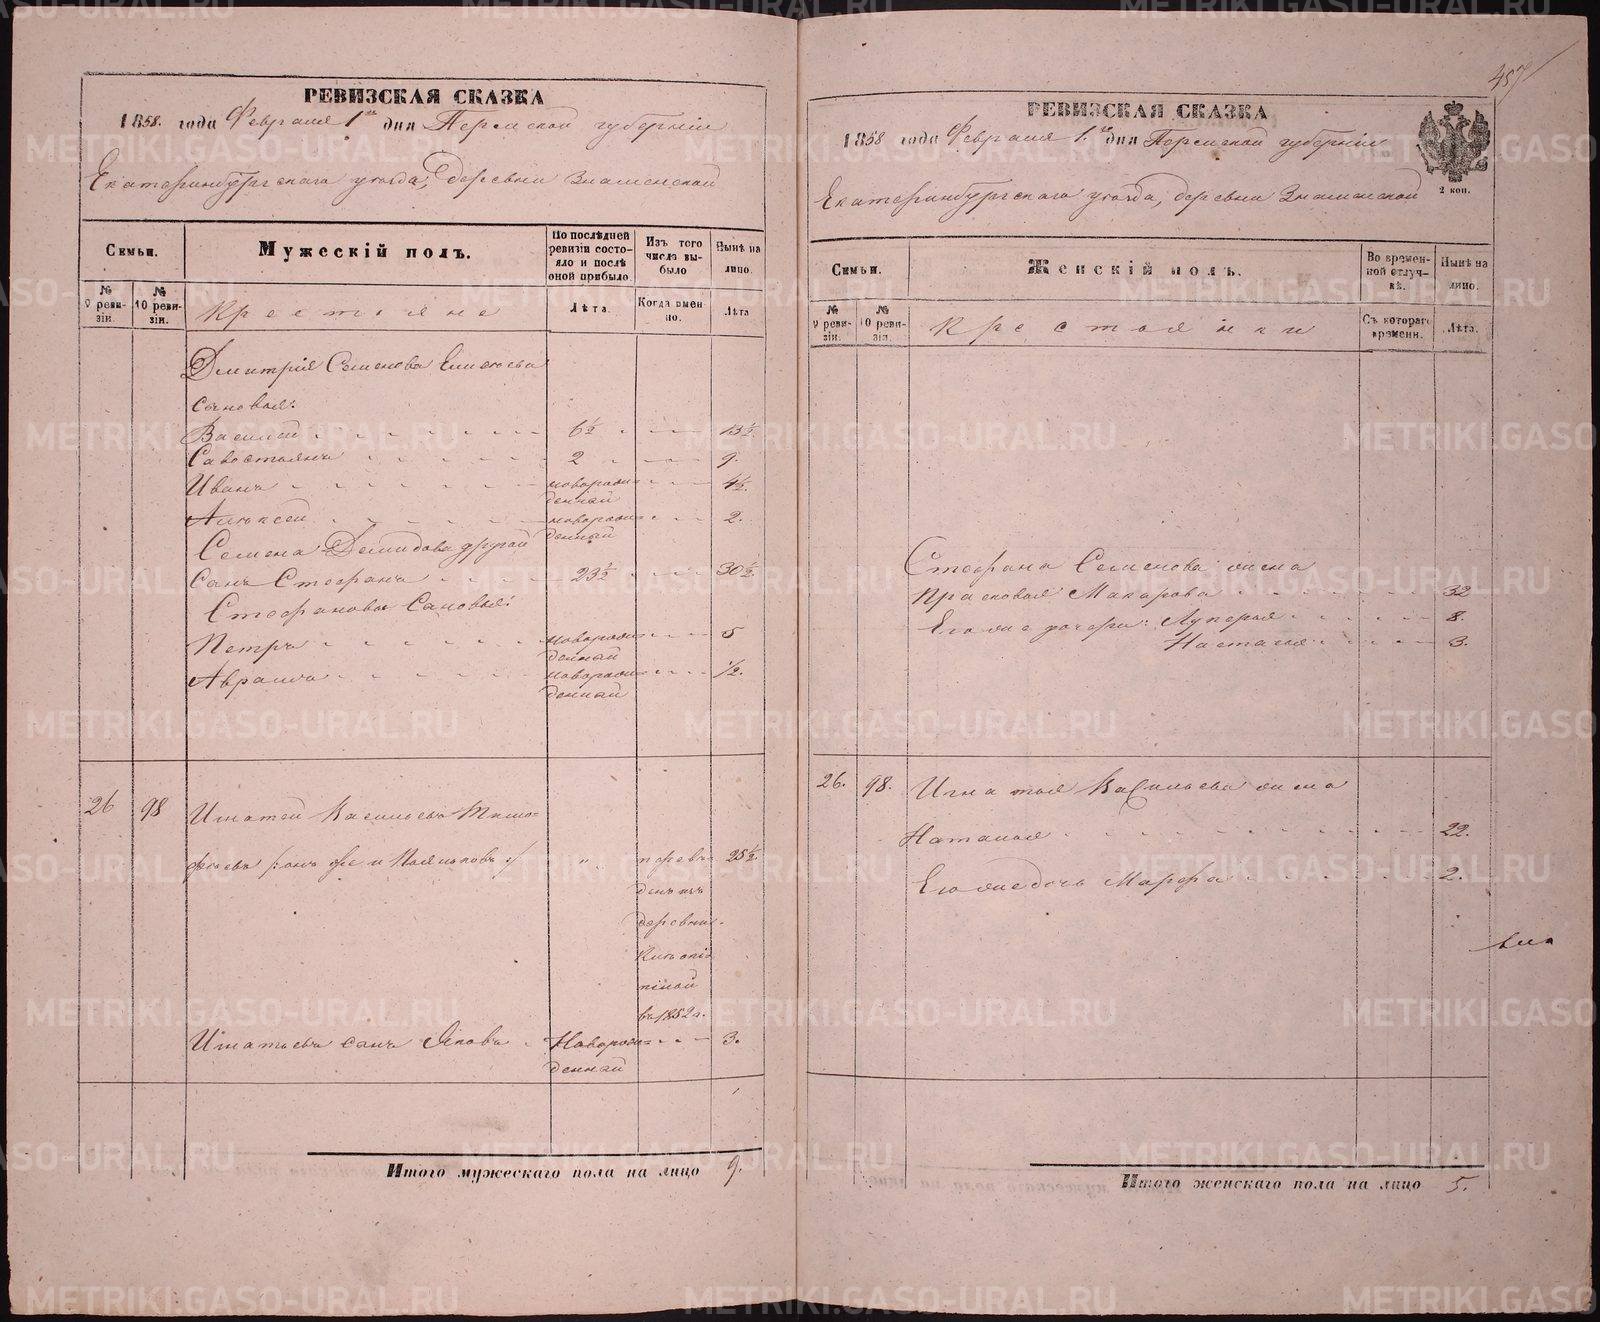 РЕВИЗСКАЯ СКАЗКА
1858. года Февраля 1го дня Пермской губернiи
Екатеринбургскаго уѣзда, деревни Знаменской
Семьи.
Мужескiй полъ.
По послѣдней ревизiи состояло и послѣ оной прибыло
Изъ того числа выбыло
Нынѣ на лицо.
№ 9 ревизiи.
№ 10 ревизiи.
Крестьяне
Лѣта.
Когда именно.
Лѣта
Дмитрiя Семенова
сыновья:
Василiй 6½ 13½.
Савостьянъ 2 9.
Иванъ новорожденный 4½.
Алексей новорожденный 2.
Семена Демидова другой
сынъ Стефанъ 23½ 30½
Стефановы сыновья:
Петръ новорожденный 5
Авраамъ новорожденный ½.
26 98 Игнатей Васильевъ Тимо=
фѣевъ " 25½.
деревни
въ 1852 г.
Игнатьевъ сынъ Яковъ Новорожденный 3.
Итого мужескаго пола на лицо 9.
457
РЕВИЗСКАЯ СКАЗКА
1858 года Февраля 1.го дня Пермской губернiи
2 коп.
Екатеринбургскаго уѣзда, деревни Знаменской
Семьи.
Женскiй полъ.
Во временной отлучкѣ.
Нынѣ на лицо.
№ 9 ревизiи.
№ 10 ревизiи.
Крестьянки
Съ котораго времени.
Лѣта.
Стефана Семенова жена
Прасковья Макарова 32
Его же дочери: Лукерья 8.
Настасья 3.
26. 98. Игнатья Васильева жена
Наталья 22.
Его же дочь Марфа 2.
Итого женскаго пола на лицо 5.
METRIKI.GASO-URAL.RU